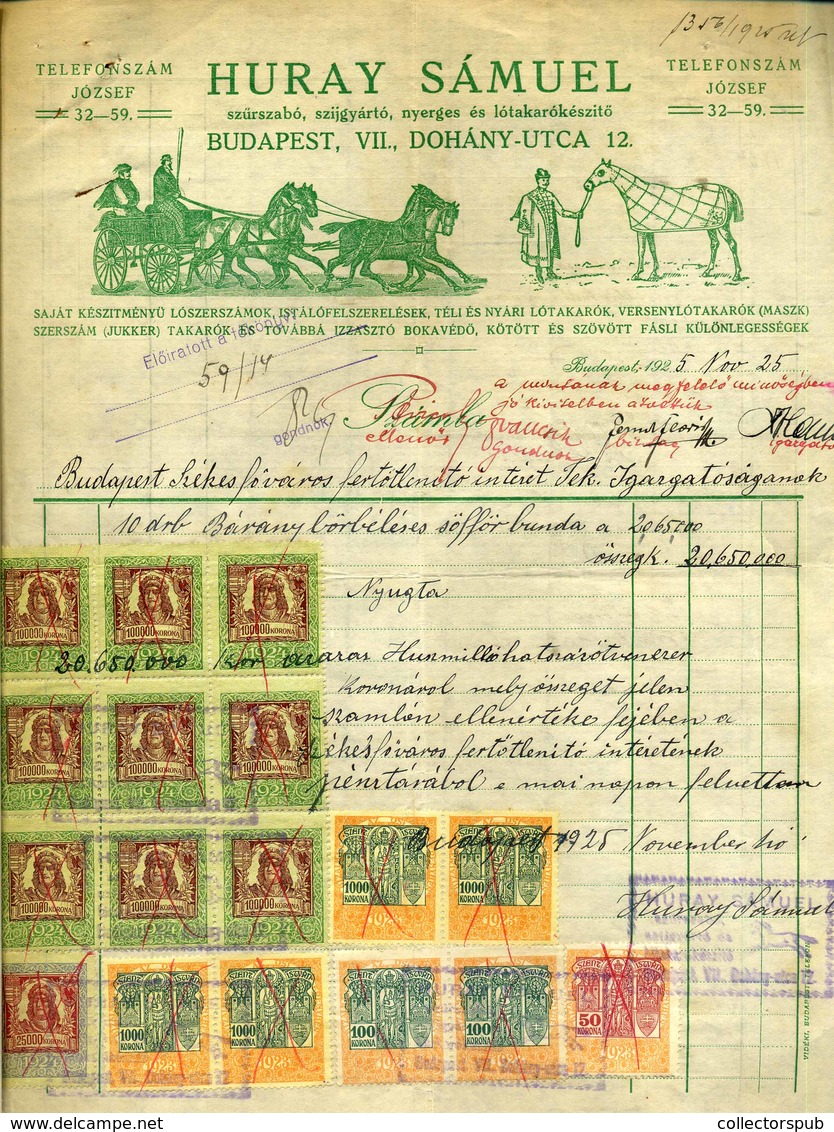 1356/1925
TELEFONSZÁM
JÓZSEF
32—59.
HURAY SÁMUEL
szűrszabó, szijgyártó, nyerges és lótakarókészitő
BUDAPEST, VII., DOHÁNY-UTCA 12.
TELEFONSZÁM
JÓZSEF
32—59.
SAJÁT KÉSZITMÉNYÜ LÓSZERSZÁMOK, ISTÁLÓFELSZERELÉSEK, TÉLI ÉS NYÁRI LÓTAKARÓK, VERSENYLÓTAKARÓK (MASZK)
SZERSZÁM (JUKKER) TAKARÓK ÉS TOVÁBBÁ IZZASZTÓ BOKAVÉDŐ, KÖTÖTT ÉS SZÖVÖTT FÁSLI KÜLÖNLEGESSÉGEK
Előiratott a
59/14
gondnok.
Budapest, 1925 Nov 25.
a mintának megfelelő minőségben
jó kivitelben átvettük
Számla
ellenőr
Ivancsik
Gondnok
Budapest Székesfőváros fertőtlenitő intézet Tek. Igazgatóságának
10 drb Báránybőrbéléses söffőr bunda a 2065000
összegk. 20,650,000
Nyugta
20.650,000 Kor azaz Huszmillióhatszázötvenezer
Koronáról mely összeget jelen
számlán ellenértéke fejében a
székesfőváros fertőtlenitő intézetének
pénztárából e mai napon felvettem
Budapest 1925 November hó
Huray Sámuel
HURAY SÁMUEL
100000 KORONA
1924
100000 KORONA
1924
100000 KORONA
1924
100000 KORONA
1924
100000 KORONA
1924
100000 KORONA
1924
100000 KORONA
1924
100000 KORONA
1924
100000 KORONA
1924
SZENT ISTVÁN
1000
KORONA
1923
SZENT ISTVÁN
1000
KORONA
1923
25000 KORONA
1924
SZENT ISTVÁN
1000
KORONA
1923
SZENT ISTVÁN
1000
KORONA
1923
SZENT ISTVÁN
100
KORONA
1923
SZENT ISTVÁN
100
KORONA
1923
SZENT ISTVÁN
50
KORONA
1923
collectorspub